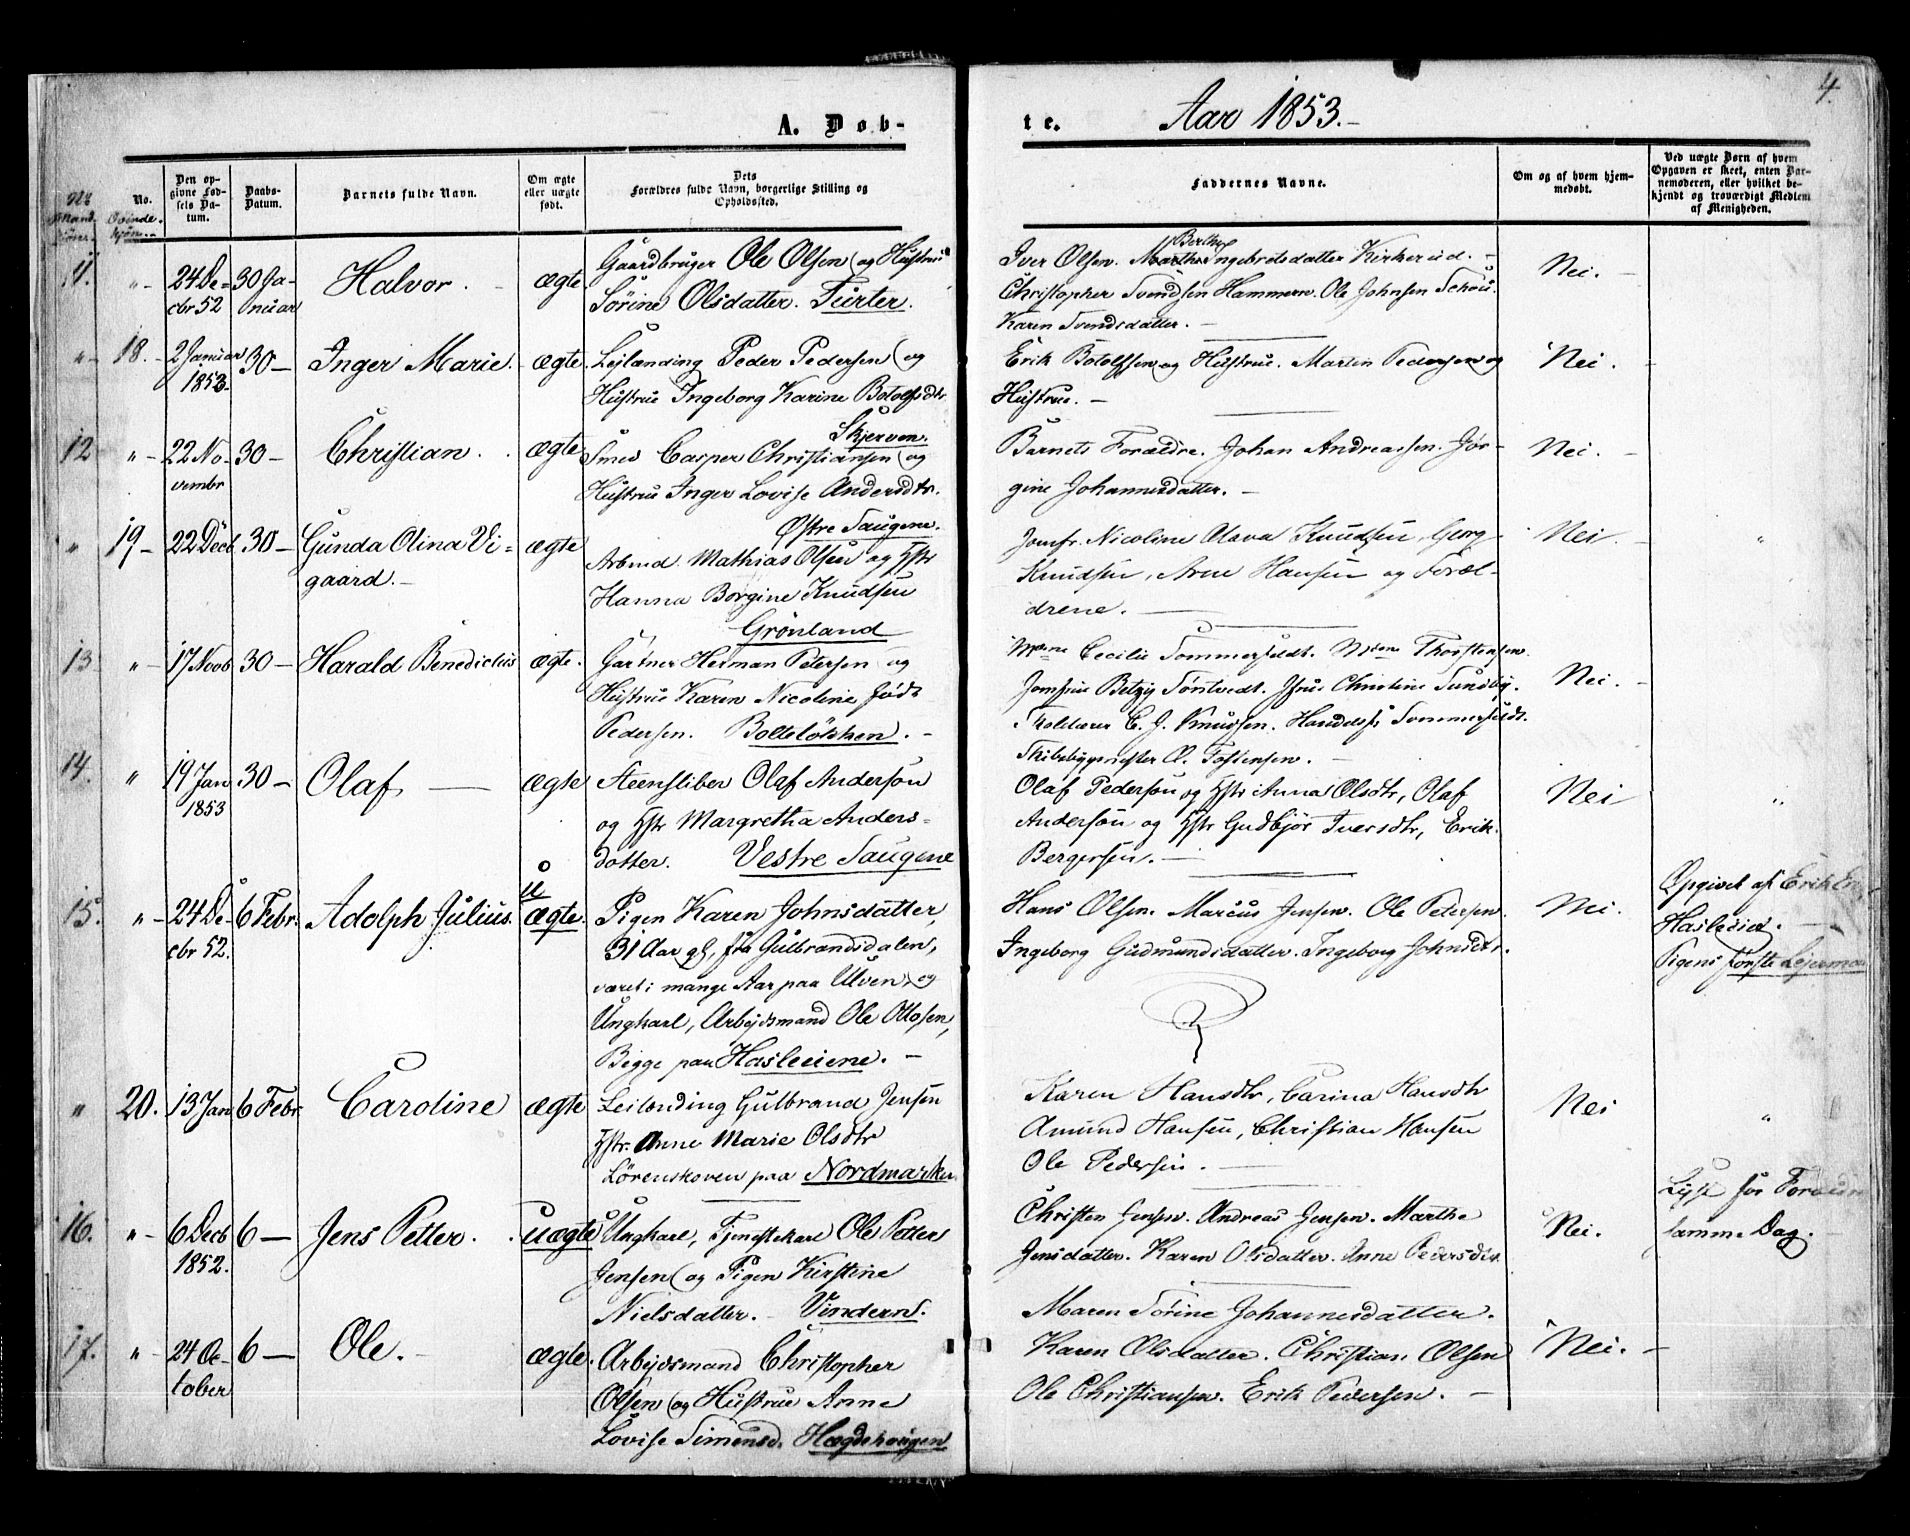 4.
A. Døb-
te. Aar 1853.-
No Mandkjøn.
No. Qvindekjøn.
Den opgivne Fødsels Datum.
Daabs-Datum.
Barnets fulde Navn.
Om ægte eller uægte født.
Dets Forældres fulde Navn, borgerlige Stilling og Opholdssted.
Faddernes Navne.
Om og af hvem hjemmedøbt.
Ved uægte Børn af hvem Opgaven er skeet, enten Barnemoderen, eller hvilket bekjendt og troværdigt Medlem af Menigheden.
11. "- 24 De- 30 Ja- Halvor. - ægte
cbr 52 nuar
Gaardbruger Ole Olsen og Hustrue
Sørine Olsdatter. Turter.
Iver Olsen. Berthe Ingebretsdatter Kirkerud. -
Christopher Svendsen Hammern. Ole Johnsen Schou.
Karen Svendsdatter. -
Nei. -
"- 18.- 2 Januar 30- Inger Marie. - ægte.
1853.
Leilænding Peder Pedersen og
Hustrue Ingeborg Karine Botolfsdtr.
Skjerven.
Erik Botolfsen og Hustrue. Martin Pedersen og
Hustrue. -
Nei. -
12 "- 22 No- 30- Christian. . ægte
vembr
Smed Casper Christiansen og
Hustrue Inger Lovise Andersdtr.
Østre Saugene.
Barnets Forældre. Johan Andreassen. Jør-
gine Johannesdatter. -
Nei. -
" 19- 22 Decb 30- Gunda Olina Vi- ægte
gaard. -
Arbmd. Mathias Olsen og Hstr
Hanna Borgine Knudsen
Grønland
Jomfr. Nicoline Olava Knudsen, Georg
Knudsen, Arne Hansen og Foræl-
drene. -
Nei. - "
13 "- 17 Novb 30- Harald Benedictus ægte.
Gartner Herman Petersen og
Hustrue Karen Nicoline, født
Pedersen. Bolteløkken. -
Cecilie Sommerfeldt. Thorstensen.
Jomfrue Betzy Tøntvedt. Christine Sundby.
C. J. Knudsen. Sommerfeldt.
Skibsbygmester
Nei. -
14. " 19 Jan 30- Olaf. - ægte
1853
Steensliber Olaf Anderson
og Hstr Margretha Anders-
dotter. Vestre Saugene
Olaf Pederson og Hstr Anna Olsdtr, Olaf
Anderson og Hstr Gudbjør Iversdtr, Erik
Bergersen. -
Nei "
15. "- 24 De- 6 Febr. Adolph Julius. uægte.
cbr 52.
Pigen Karen Johnsdatter,
31 Aar gl, fra Gulbrandsdalen,
været i mange Aar paa Ulven, og
Ungkarl, Arbejdsmand Ole Ottosen,
Begge paa Hasleeiene. -
Hans Olsen. Marcus Jensen. Ole Petersen.
Ingeborg Gudmundsdatter. Ingeborg Johnsdtr.
Nei.
Opgivet af Erik
Hasleeiet. -
Pigens første Lejermaal
" 20. 13 Jan 6 Febr. Caroline ægte
Leilænding Gulbrand Jensen
Hstr. Anne Marie Olsdtr
Lørenskoven paa Nordmarken
Karen Hansdtr, Carina Hansdtr
Amund Hansen, Christian Hansen
Ole Pedersen. -
Nei "
16. "- 6 Decb 6- Jens Petter. . uægte
1852.
Ungkarl, Tjenestekarl Ole Petter
Jensen og Pigen Kirstine
Nielsdatter. - Vindern.
Christen Jensen. Andreas Jensen. Marthe
Jensdatter. Karen Olsdatter. Anne Pedersdtr.
Nei.
Lyst for Forældr
samme Dag. -
17. "- 24 Oc- 6- Ole. - ægte.
tober
Arbejdsmand Christopher
Olsen og Hustrue Anne
Lovise Simensd. Hægdehougen
Maren Sørine Johannesdatter.
Karen Olsdatter. Christian Olsen
Ole Christiansen. Erik Pedersen. -
Nei. -